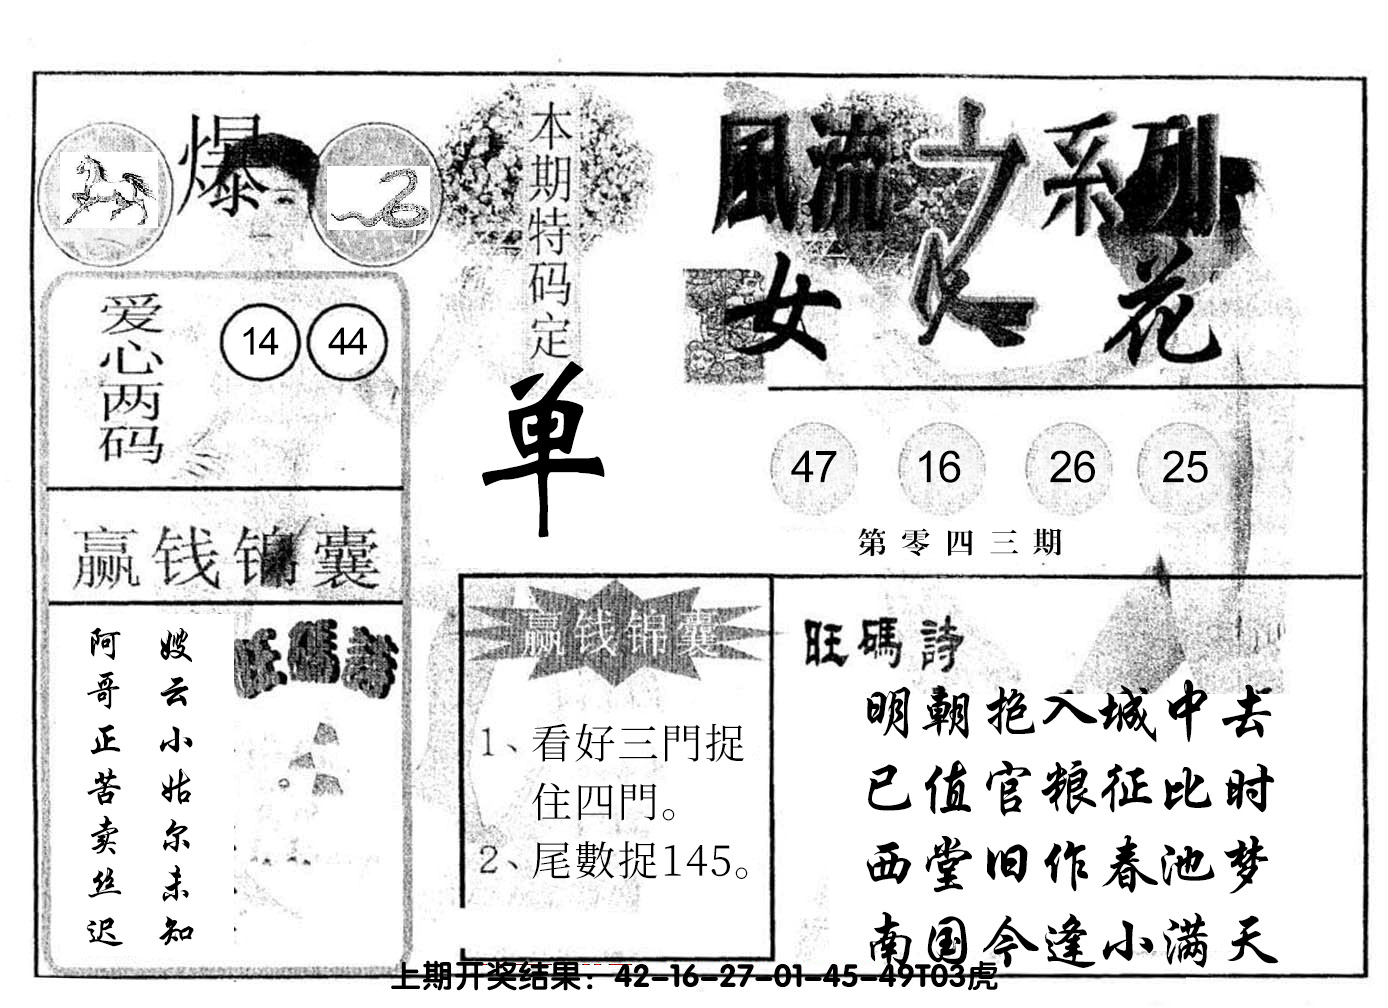 爆
本期特码定
单
風流之系列
女人花
爱心两码
14 44
47 16 26 25
第零四三期
赢钱锦囊
嫂云小姑尔未知
阿哥正苦卖丝迟
旺碼詩
赢钱锦囊
1、看好三門捉
住四門。
2、尾數捉145。
旺碼詩
明朝抱入城中去
已值官粮征比时
西堂旧作春池梦
南国今逢小满天
上期开奖结果：42-16-27-01-45-49T03虎